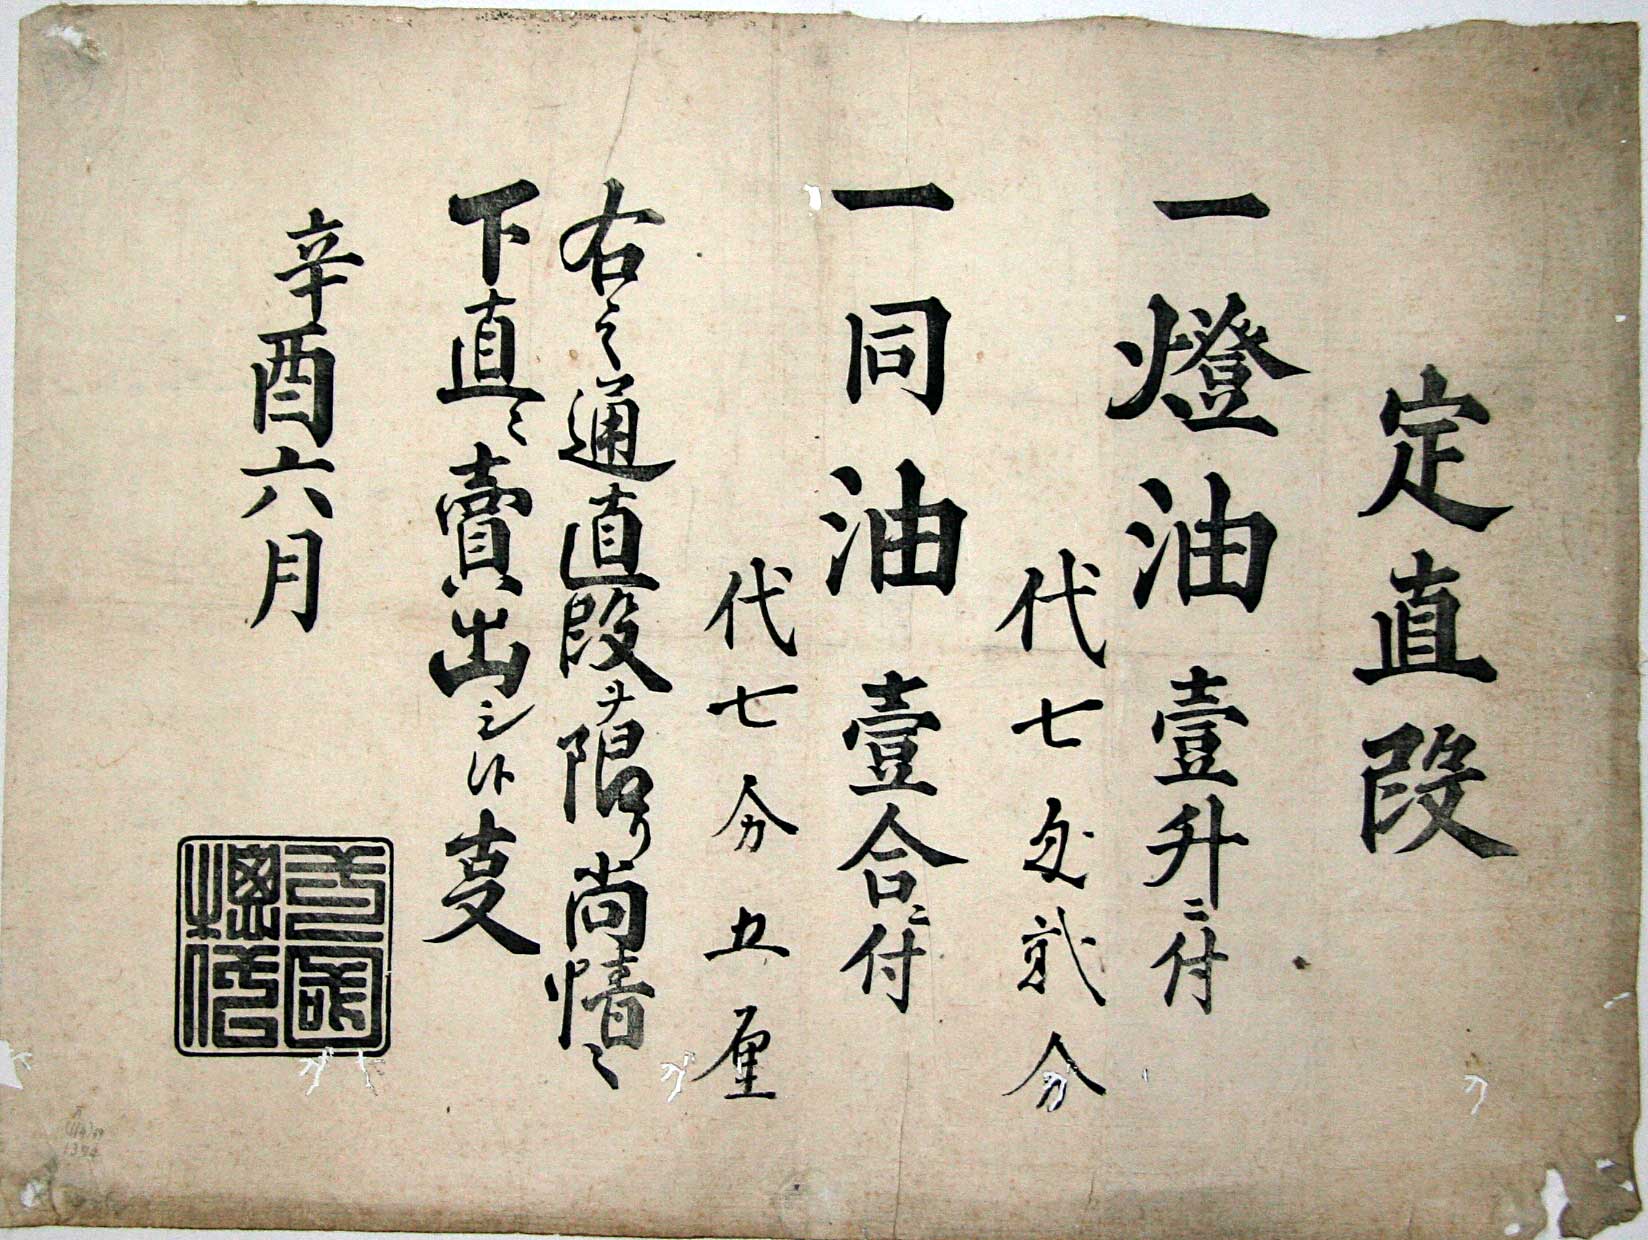 定直段
一燈油壹升ニ付
代七匁貳分
一同油壹合ニ付
代七分五厘
右之通直段ヲ限り尚情々
下直ニ賣出シ候事
辛酉六月